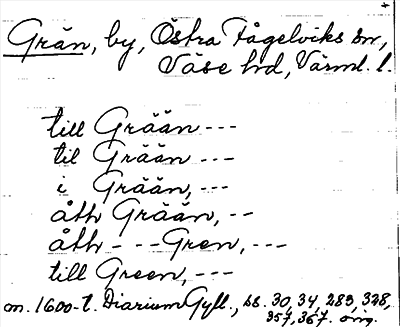 Grän, by, Östra Fågelviks sn,
Väse hd, Värml. l.
till Grään ---
til Grään ---
i Grään, ---
åth Grään, --
åth - - -Gren, ---
till Green, ---
m. 1600-t. Diarium Gyll., ss. 30, 34, 283, 328,
357, 367. orig.